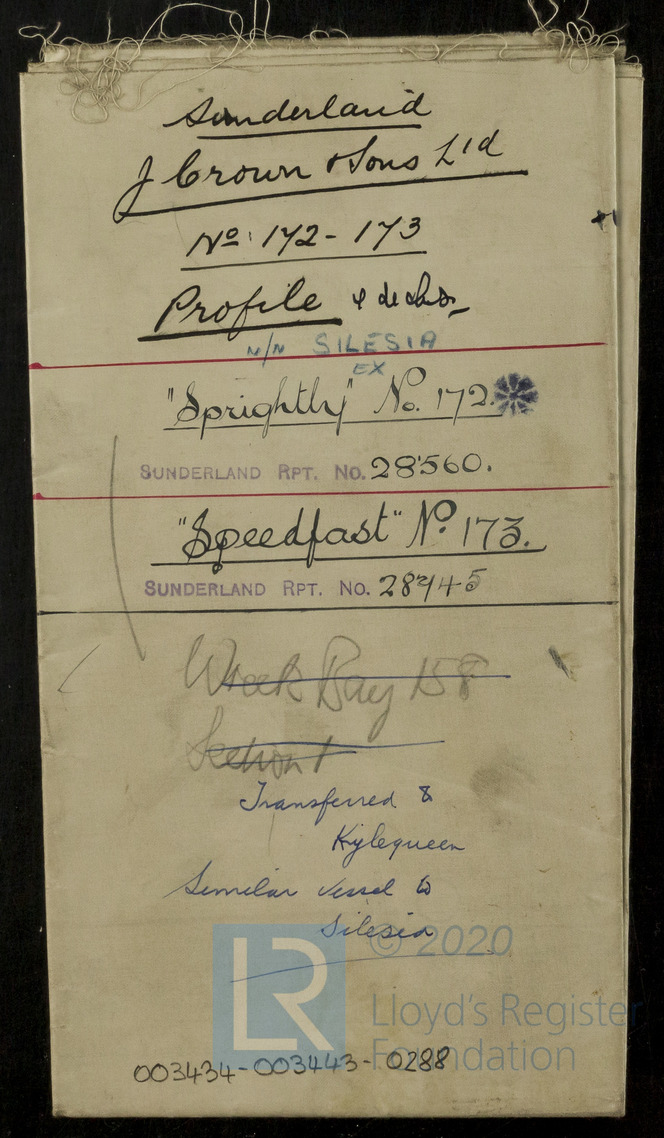 Sunderland
J Crown & Sons Ltd
No: 172-173
Profile & decks
N/N SILESIA
EX
"Sprightly" No. 172.
SUNDERLAND RPT. No. 28560.
"Speedfast" No 173.
SUNDERLAND RPT. No. 28745
Wreck Bay 158
Section 1
Transferred &
Kylequeen
Similar vessel to
Silesia
© 2020
LR
Lloyd's Register
Foundation
003434-003443-0288